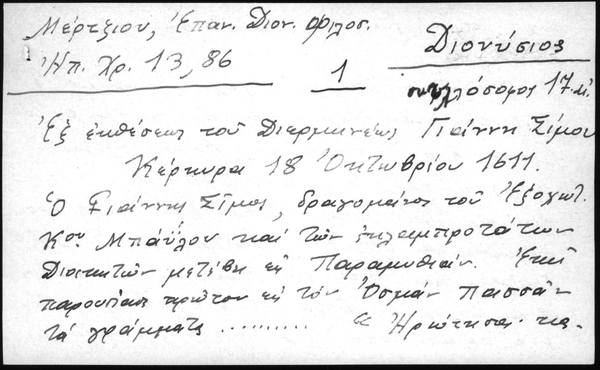 Μέρτζιου, Ἐπαν. Διον. Φιλοσ.
Ἠπ. Χρ. 13, 86
1
Διονύσιος
17 αἰ.
Ἐξ ἐκθέσεως τοῦ Διερμηνέως Γιάννη Σίμου
Κέρκυρα 18 Ὀκτωβρίου 1611.
Ὁ Γιάννης Σῖμος, δραγομάνος τοῦ Ἐξοχωτ.
Κου. Μπαΰλου καὶ τῶν ἐκλαμπροτάτων
Διοικητῶν μετέβη εἰς Παραμυθίαν. Ἐκεῖ
παρουσίασε πρῶτον εἰς τὸν Ὀσμάν Πασσᾶν
τά γράμματα .......... « Ἠρώτησα